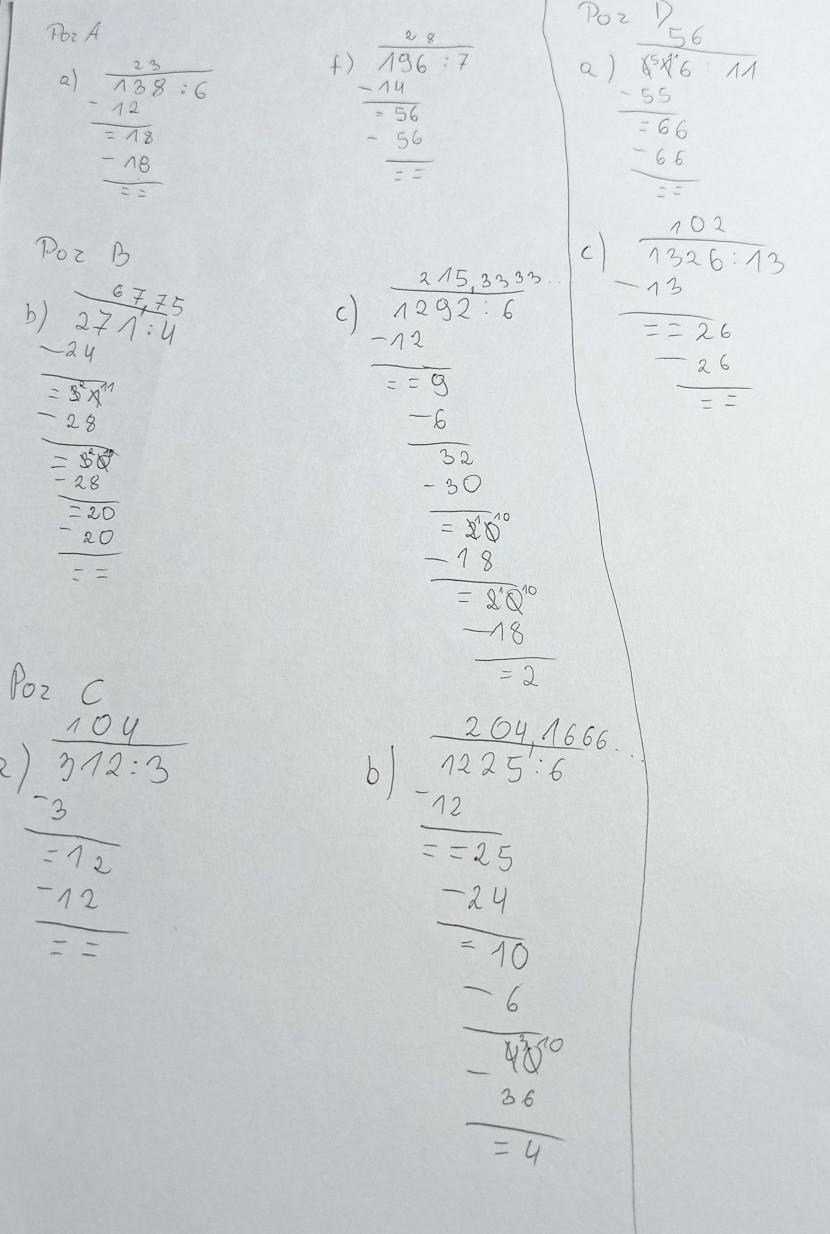 Poz A
23
a) 138 : 6
- 12
= 18
- 18
= =
28
f) 196 : 7
- 14
= 56
- 56
= =
Poz B
67,75
b) 271 : 4
- 24
= 31 2 11
- 28
= 30 2 10
- 28
= 20
- 20
= =
215,3333...
c) 1292 : 6
- 12
= = 9
- 6
32
- 30
= 20 1 10
- 18
= 20 1 10
- 18
= 2
Poz C
104
312 : 3
- 3
= 12
- 12
= =
204,1666...
b) 1225 : 6
- 12
= = 25
- 24
= 10
- 6
- 40 3 10
36
= 4
Poz D
56
a) 616 : 11
- 55
= 66
- 66
= =
102
c) 1326 : 13
- 13
= = 26
- 26
= =